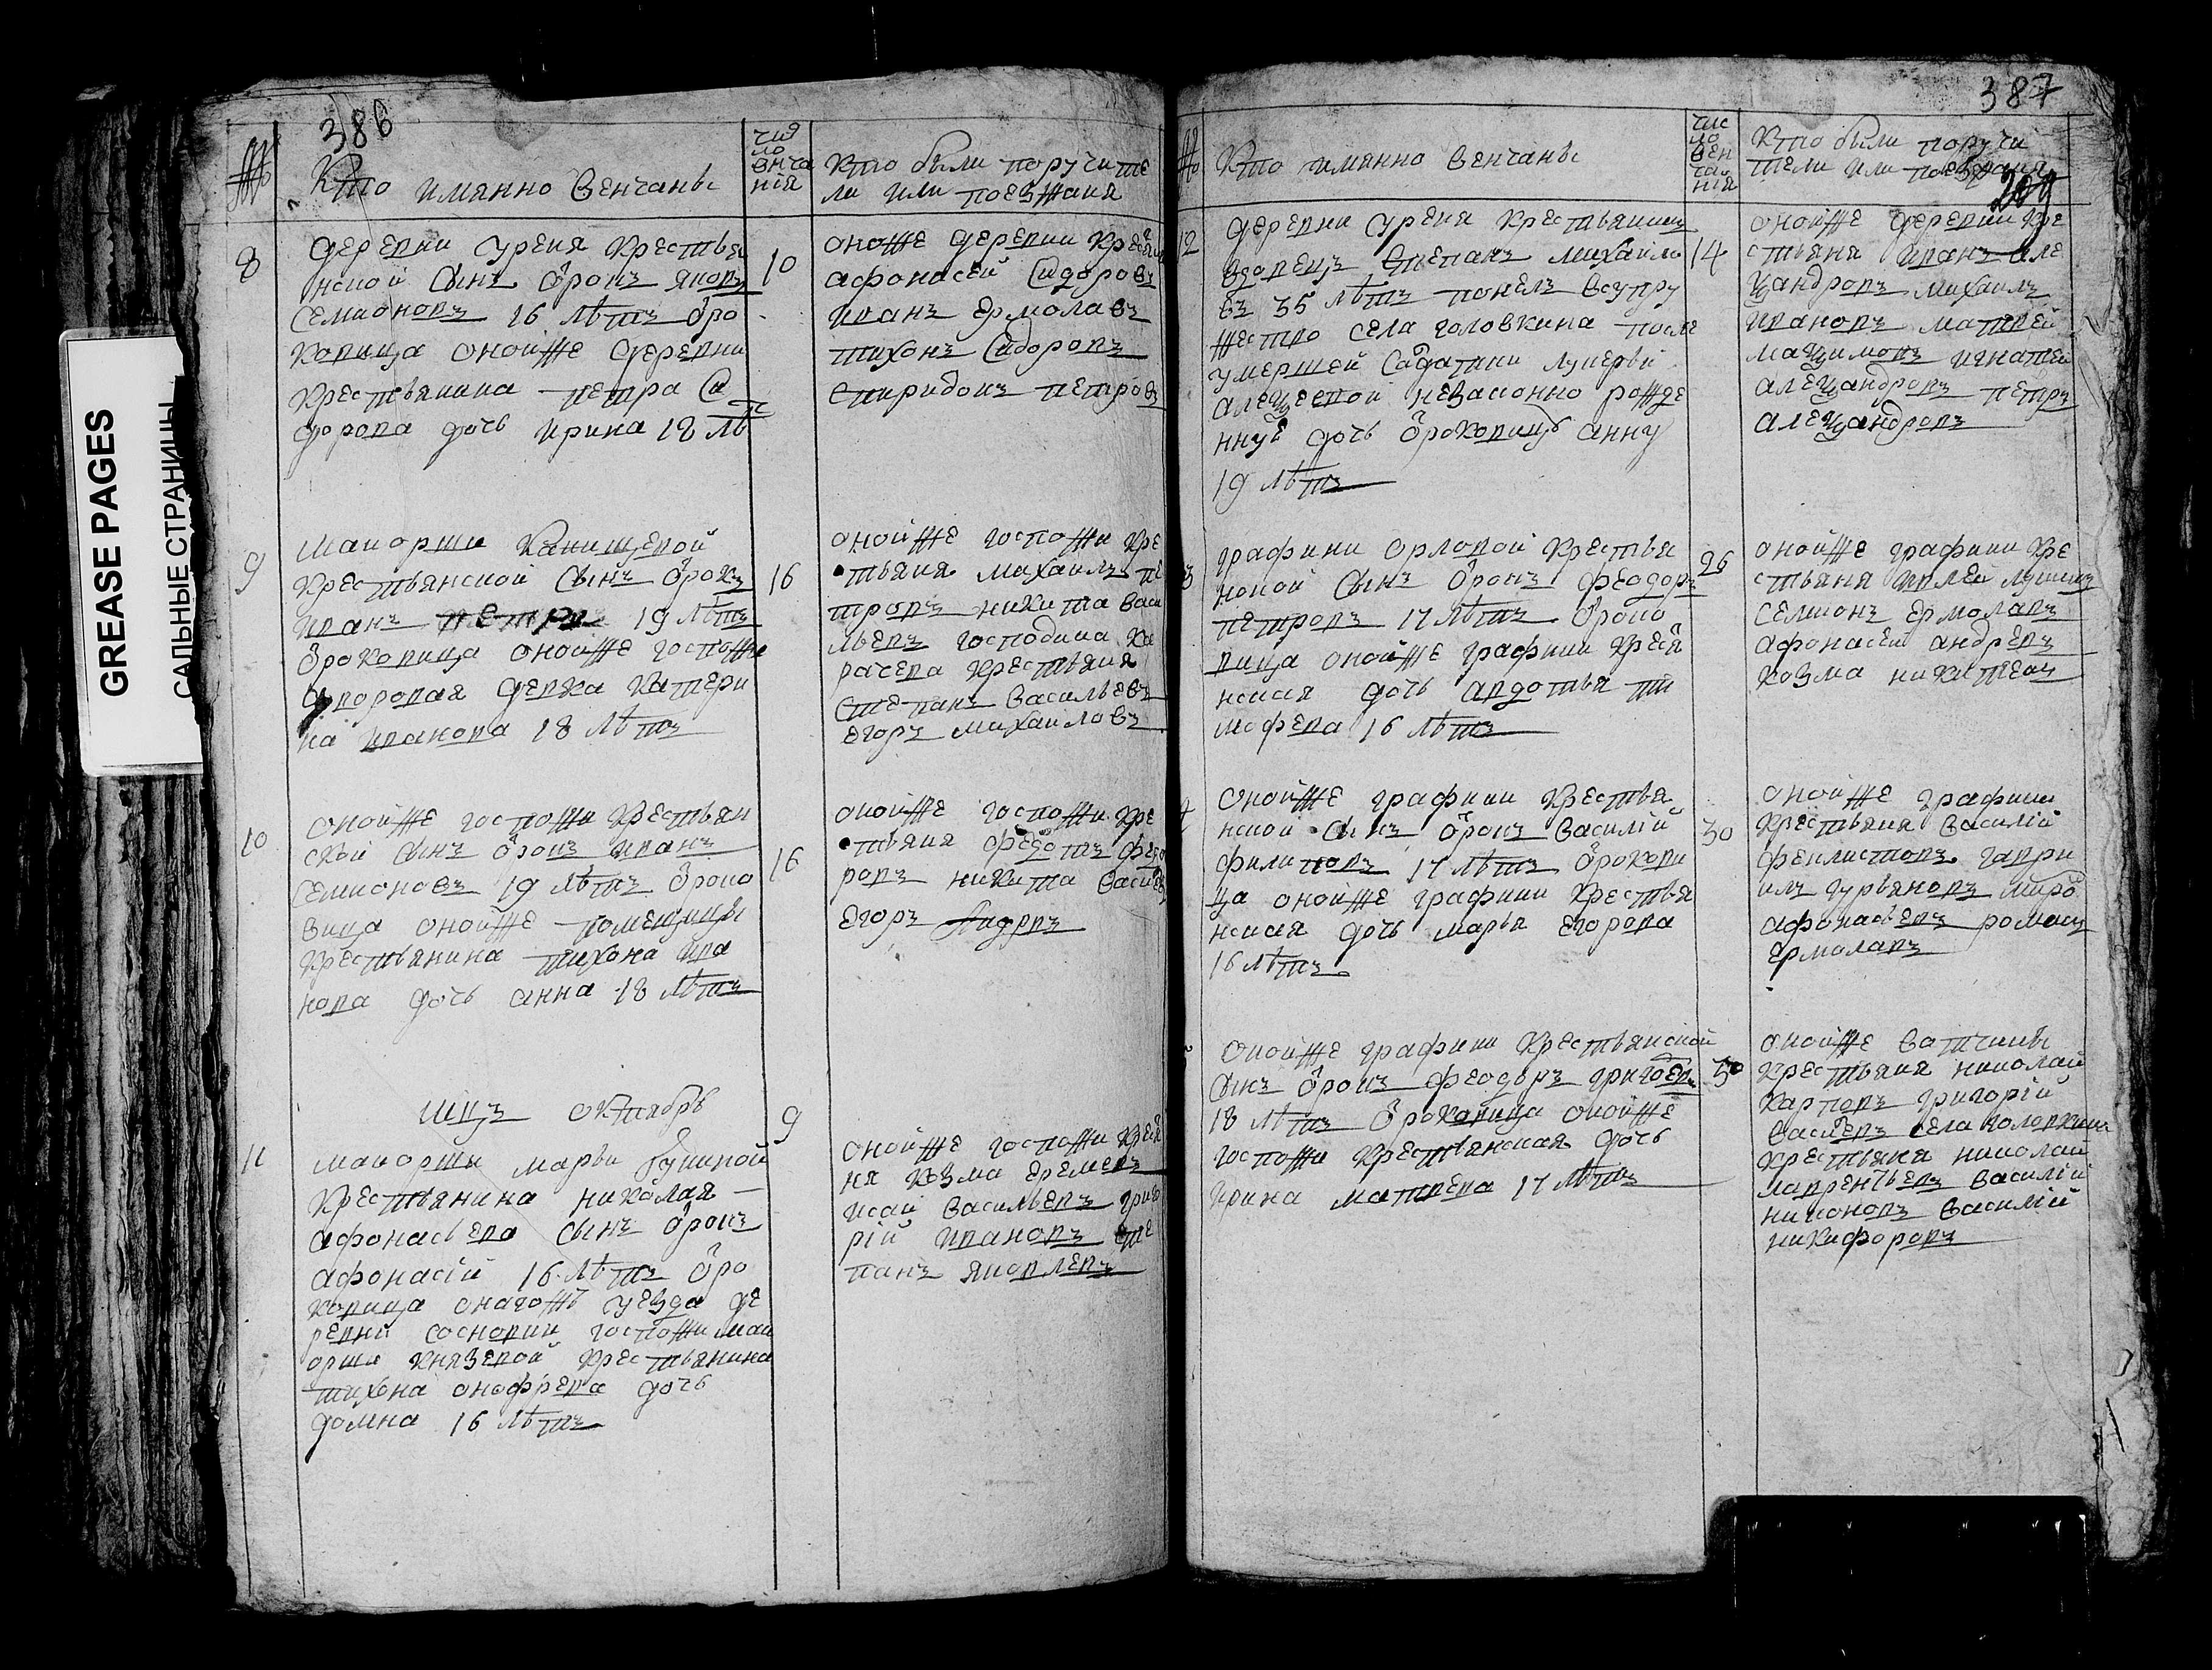 GREASE PAGES
САЛЬНЫЕ СТРАНИЦЫ
386
№
Кто имянно венчаны
чис
ло
венча
нія
Кто были поручите
ли или поезжаня
8
деревни Суреня крестья
нской сынъ отрокъ яковъ
Семионовъ 16 лѣтъ отро
ковица оной же деревни
крестьянина петра Си
дорова дочь ирина 18 лѣт
10
оной же деревни крестьяня
афонасей Сидоровъ
иванъ Ермолавъ
тихонъ Сидоровъ
спиридонъ петровъ
9
маиорши Канищевой
крестьянской сынъ отрокъ
иванъ петро 19 лѣтъ
отроковица оной же госпожи
дворовая девка катери
на иванова 18 лѣтъ
16
оной же госпожи кре
стьяня михаилъ пе
тровъ никита васи
льевъ господина Ка
рачева крестьяня
степанъ васильевъ
егоръ михаиловъ
10
оной же госпожи крестьян
ской сынъ отрокъ иванъ
семионовъ 19 лѣтъ отроко
вица оной же помещицы
крестьянина тихона ива
нова дочь анна 18 лѣтъ
16
оной же госпожи кре
стьяня федотъ федо
ровъ никита васильевъ
егоръ
мцъ октябрь
11
маиорши марьи
крестьянина николая
афонасьева сынъ отрокъ
афонасій 16 лѣтъ отро
ковица онагожъ уезда де
ревни сосновки госпожи маи
орши князевой крестьянина
тихона онофрева дочь
домна 16 лѣтъ
9
оной же госпожи крестья
ня козма еремевъ
исай васильевъ григо
рій ивановъ сте
панъ яковлевъ
387
№
Кто имянно венчаны
чис
ло
вен
ча
нія
Кто были поручи
тели или поезжаня
12
деревни суреня крестьянинъ
вдовецъ степанъ михаило
въ 35 лѣтъ понелъ всупру
жество села головкина после
умершей салдатки лукерьи
алексеевой незаконно рожде
нную дочь отроковицу анну
19 лѣтъ
14
оной же деревни кре
стьяня иванъ але
ксандровъ михаилъ
ивановъ матвей
максимовъ игнатей
александровъ петръ
александровъ
графини орловой крестья
нской сынъ отрокъ феодоръ
петровъ 17 лѣтъ отроко
вица оной же графини крестья
нская дочь авдотья ти
мофева 16 лѣтъ
26
оной же графини кре
стьяня
семионъ ермолавъ
афонасей андревъ
козма никитевъ
оной же графини крестья
нской сынъ отрокъ василій
филиповъ 17 лѣтъ отрокови
ца оной же графини крестья
нская дочь марья егорова
16 лѣтъ
30
оной же графини
крестьяня василій
феклистовъ гаври
илъ гурьяновъ
афонасьевъ романъ
ермолавъ
оной же графини крестьянской
сынъ отрокъ феодоръ григорев
18 лѣтъ отроковица оной же
госпожи крестьянская дочь
ирина матвева 17 лѣтъ
30
оной жеватчины
крестьяня николай
карповъ григорій
васильевъ села головкина
крестьяня николай
лаврентьевъ василій
никоновъ василій
никифоровъ